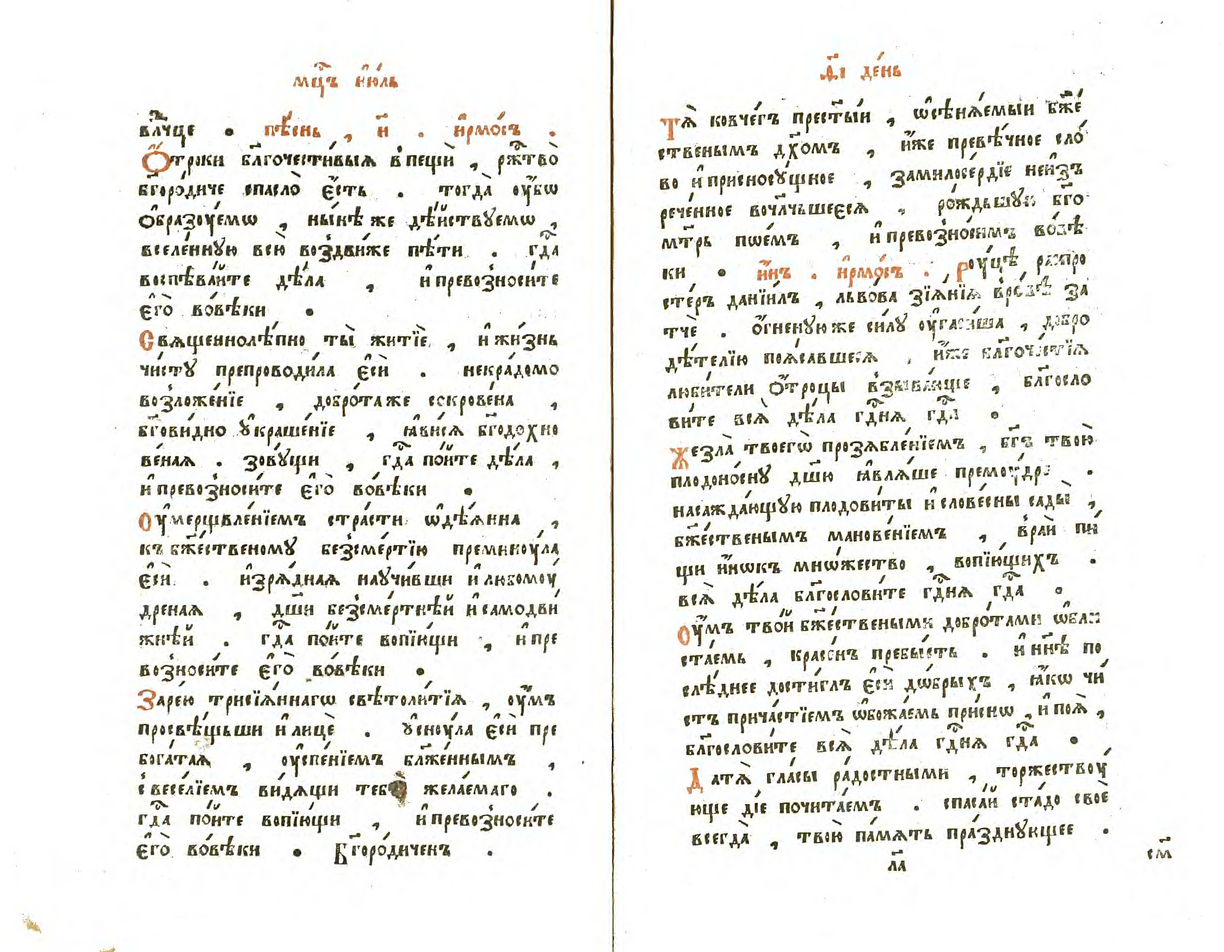 мц҃ъ і҆ю́ль
влⷣчце . пѣ́снь , и҃ . і҆рмо́съ .
Ѻ҆́троки бл҃гочести́выѧ в̾пещѝ , рж҃тво̀
бг҃оро́диче спасло̀ є҆́сть . тогда̀ оу҆́бѡ
ѻ҆бразꙋ́емѡ , ны́нѣ же дѣ́йствꙋемѡ ,
вселе́ннꙋю всю̀ воздви́же пѣ́ти . гдⷭ҇а
воспѣва́йте дѣ́ла , и҆ превозноси́те
є҆го̀ во́вѣки .
Свѧщеннолѣ́пно ты̀ житїѐ , и҆ жи́знь
чи́стꙋ препроводи́ла є҆сѝ . некра́домо
возложе́нїе , добро́та же сокрове́на ,
бг҃ови́дно ᲂу҆краше́нїе , ꙗ҆ви́сѧ бг҃одꙋхно
ве́наѧ . зовꙋ́щи , гдⷭ҇а по́йте дѣ́ла ,
и҆ превозноси́те є҆го̀ во́вѣки .
Оу҆мерщвле́нїемъ стра́сти ѡ҆дѣ́ѧнна ,
къ бж҃е́ственомꙋ безсме́ртїю преминꙋ́ла
є҆сѝ . и҆зрѧ́днаѧ наꙋчи́вши и҆ любомоу́
дренаѧ , дш҃и безсме́ртнѣй и҆ самодви́
жнѣй . гдⷭ҇а по́йте вопїю́щи , и҆ пре
возноси́те є҆го̀ во́вѣки .
Заре́ю трисїѧ́ннагѡ свѣтоли́тїѧ , оу҆́мъ
просвѣ́щьши и҆ лицѐ . ᲂу҆снꙋ́ла є҆сѝ пре
бога́таѧ , оу҆спе́нїемъ бл҃же́ннымъ ,
с̾весе́лїемъ ви́дѧщи тебѐ жела́емаго .
гдⷭ҇а по́йте вопїю́щи , и҆ превозноси́те
є҆го̀ во́вѣки . Бг҃оро́диченъ .
а҃і де́нь
Тѧ̀ ковче́гъ прест҃ы́й , ѡ҆сѣнѧ́емый бж҃е́
ственымъ дх҃омъ , и҆́же превѣ́чное сло́
во и҆ присносꙋ́щное , за милосе́рдїе неи҆зъ
рече́нное вочл҃чьшееся , ро́ждьшꙋю бг҃о
мт҃рь пое́мъ , и҆ превозно́симъ во́вѣ
ки . и҆́нъ . і҆рмо́съ . Рꙋ́цѣ распро
сте́ръ данїи́лъ , льво́ва зїѧ́нїѧ вро́вѣ за
тчѐ . ѻ҆́гненꙋю же си́лꙋ оу҆гаси́ша , добро
дѣ́телїю поѧ́савшесѧ , и҆̀же бл҃гоче́стїѧ
люби́тели ѻ҆́троцы взыва́юще , бл҃госло
ви́те всѧ̀ дѣ́ла гдⷭ҇нѧ гдⷭ҇а .
Жезла̀ твоегѡ̀ прозѧбле́нїемъ , бг҃ъ твою̀
плодоно́снꙋ дш҃ꙋ ꙗ҆влѧ́ше премоу́дре .
насажда́ющꙋю плодови́ты и҆ слове́сны сады̀ ,
бж҃е́ственымъ манове́нїемъ , в̾ра́й пи́
щи и҆́нокъ мно́жество , вопїю́щихъ .
всѧ̀ дѣ́ла бл҃гослови́те гдⷭ҇нѧ гдⷭ҇а .
Оу҆́мъ тво́й бж҃е́ствеными добро́тами ѡ҆бла
ста́емь , кра́сенъ пребы́сть . и҆ нн҃ѣ по
слѣ́днее дости́глъ є҆сѝ до́брыхъ , ꙗ҆́кѡ чи́
стъ прича́стїемъ ѡ҆божа́емь при́сно , и҆ поѧ̀ ,
бл҃гослови́те всѧ̀ дѣ́ла гдⷭ҇нѧ гдⷭ҇а .
Да тѧ̀ гла́сы ра́достными , торжествꙋ́
юще діе почита́емъ . спаса́й ста́до своѐ
всегда̀ , твою̀ па́мѧть пра́зднꙋющее .
ла҃